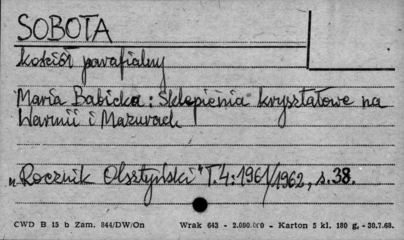 SOBOTA
kościół parafialny
Maria Babicka: Sklepienia kryształowe na
Warmii i Mazurach
„Rocznik Olsztyński" T.4:1961/1962, s.38.
CWD B 15 b Zam. 844/DW/On Wrak 643 - 2.000.000 - Karton 5 kl. 180 g, - 30.7.68.